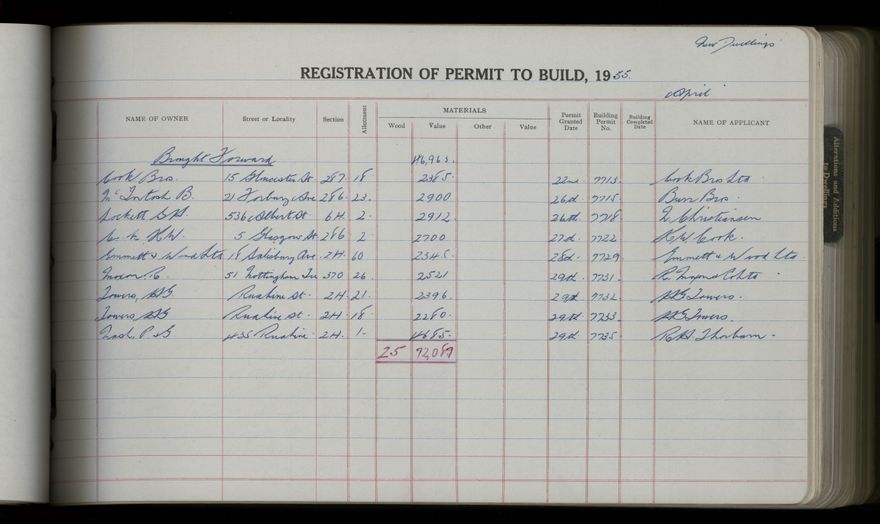 New Dwellings
REGISTRATION OF PERMIT TO BUILD, 1955
April
NAME OF OWNER Street or Locality Section Allotment MATERIALS Wood Value Other Value Permit Granted Date Building Permit No. Building Completed Date NAME OF APPLICANT
Brought Forward 46,963.
Cook Bros. 15 Gloucester St. 287. 18 2385. 22nd 7713. Cook Bros Ltd
McIntosh B. 21 Forbury Ave 286. 23. 2900 26th 7715. Burr Bros.
Lockett 536 Albert St. 6H. 2. 2912. 26th 7718. Christiansen
K.W. 5 Glasgow St 286 2 2700 27th. 7722 K.W. Cook.
Emmett & Wood Ltd 18 Salisbury Ave. 2H. 60 2345. 28th. 7729 Emmett & Wood Ltd.
51 Nottingham 370 26. 2521 29th. 7731. R.
Towers, Ruahine St. 2H. 21. 2396. 29th 7732. Towers.
Towers, Ruahine St. 2H. 18 2280. 29th 7733. Towers.
Nash, P & G 435 Ruahine. 2H. 1. 4685. 29th 7735.
25 72,087
Alterations and Additions to Dwellings